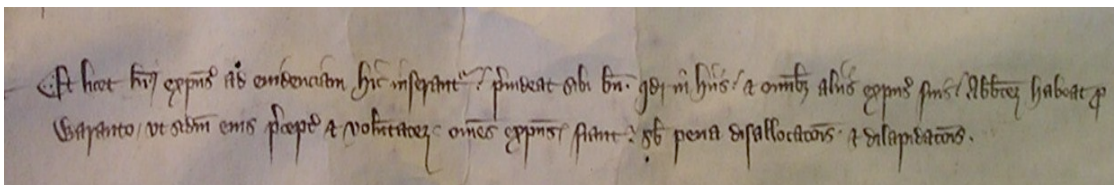 Et licet huius expens ad evidenciam hic inserantur / provideat sibi bene qd in huius / & omnibz aliis expens suis / Abbatem habeat pro
Waranto / ut sedm eius precept & voluntatem omes expens fiant sub pena disallocacois & dilapidacois .